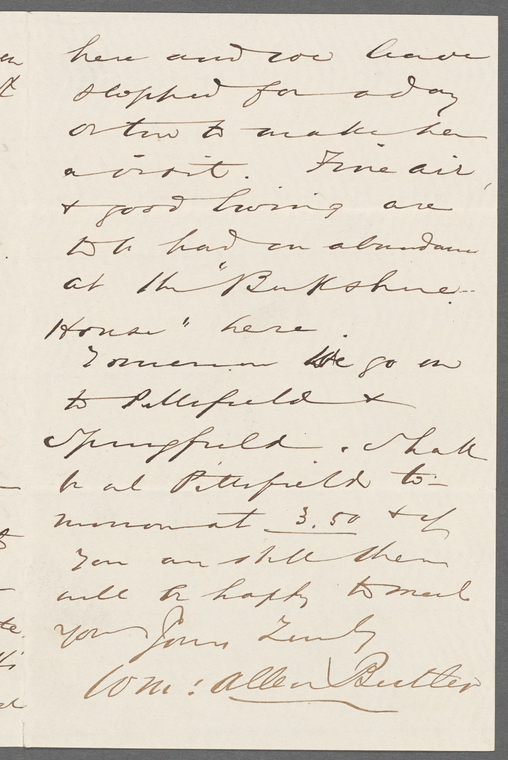 here and we have
stopped for a day
or two to make her
a visit. Fine air,
+ good living are
to be had in abundance
at the "Berkshire
House" here.
Tomorrow we go on
to Pittsfield +
Springfield. Shall
be at Pittsfield to-
morrow at 3.50 + if
you are still there
will be happy to meet
you Yours Truly
Wm: Allen Butler